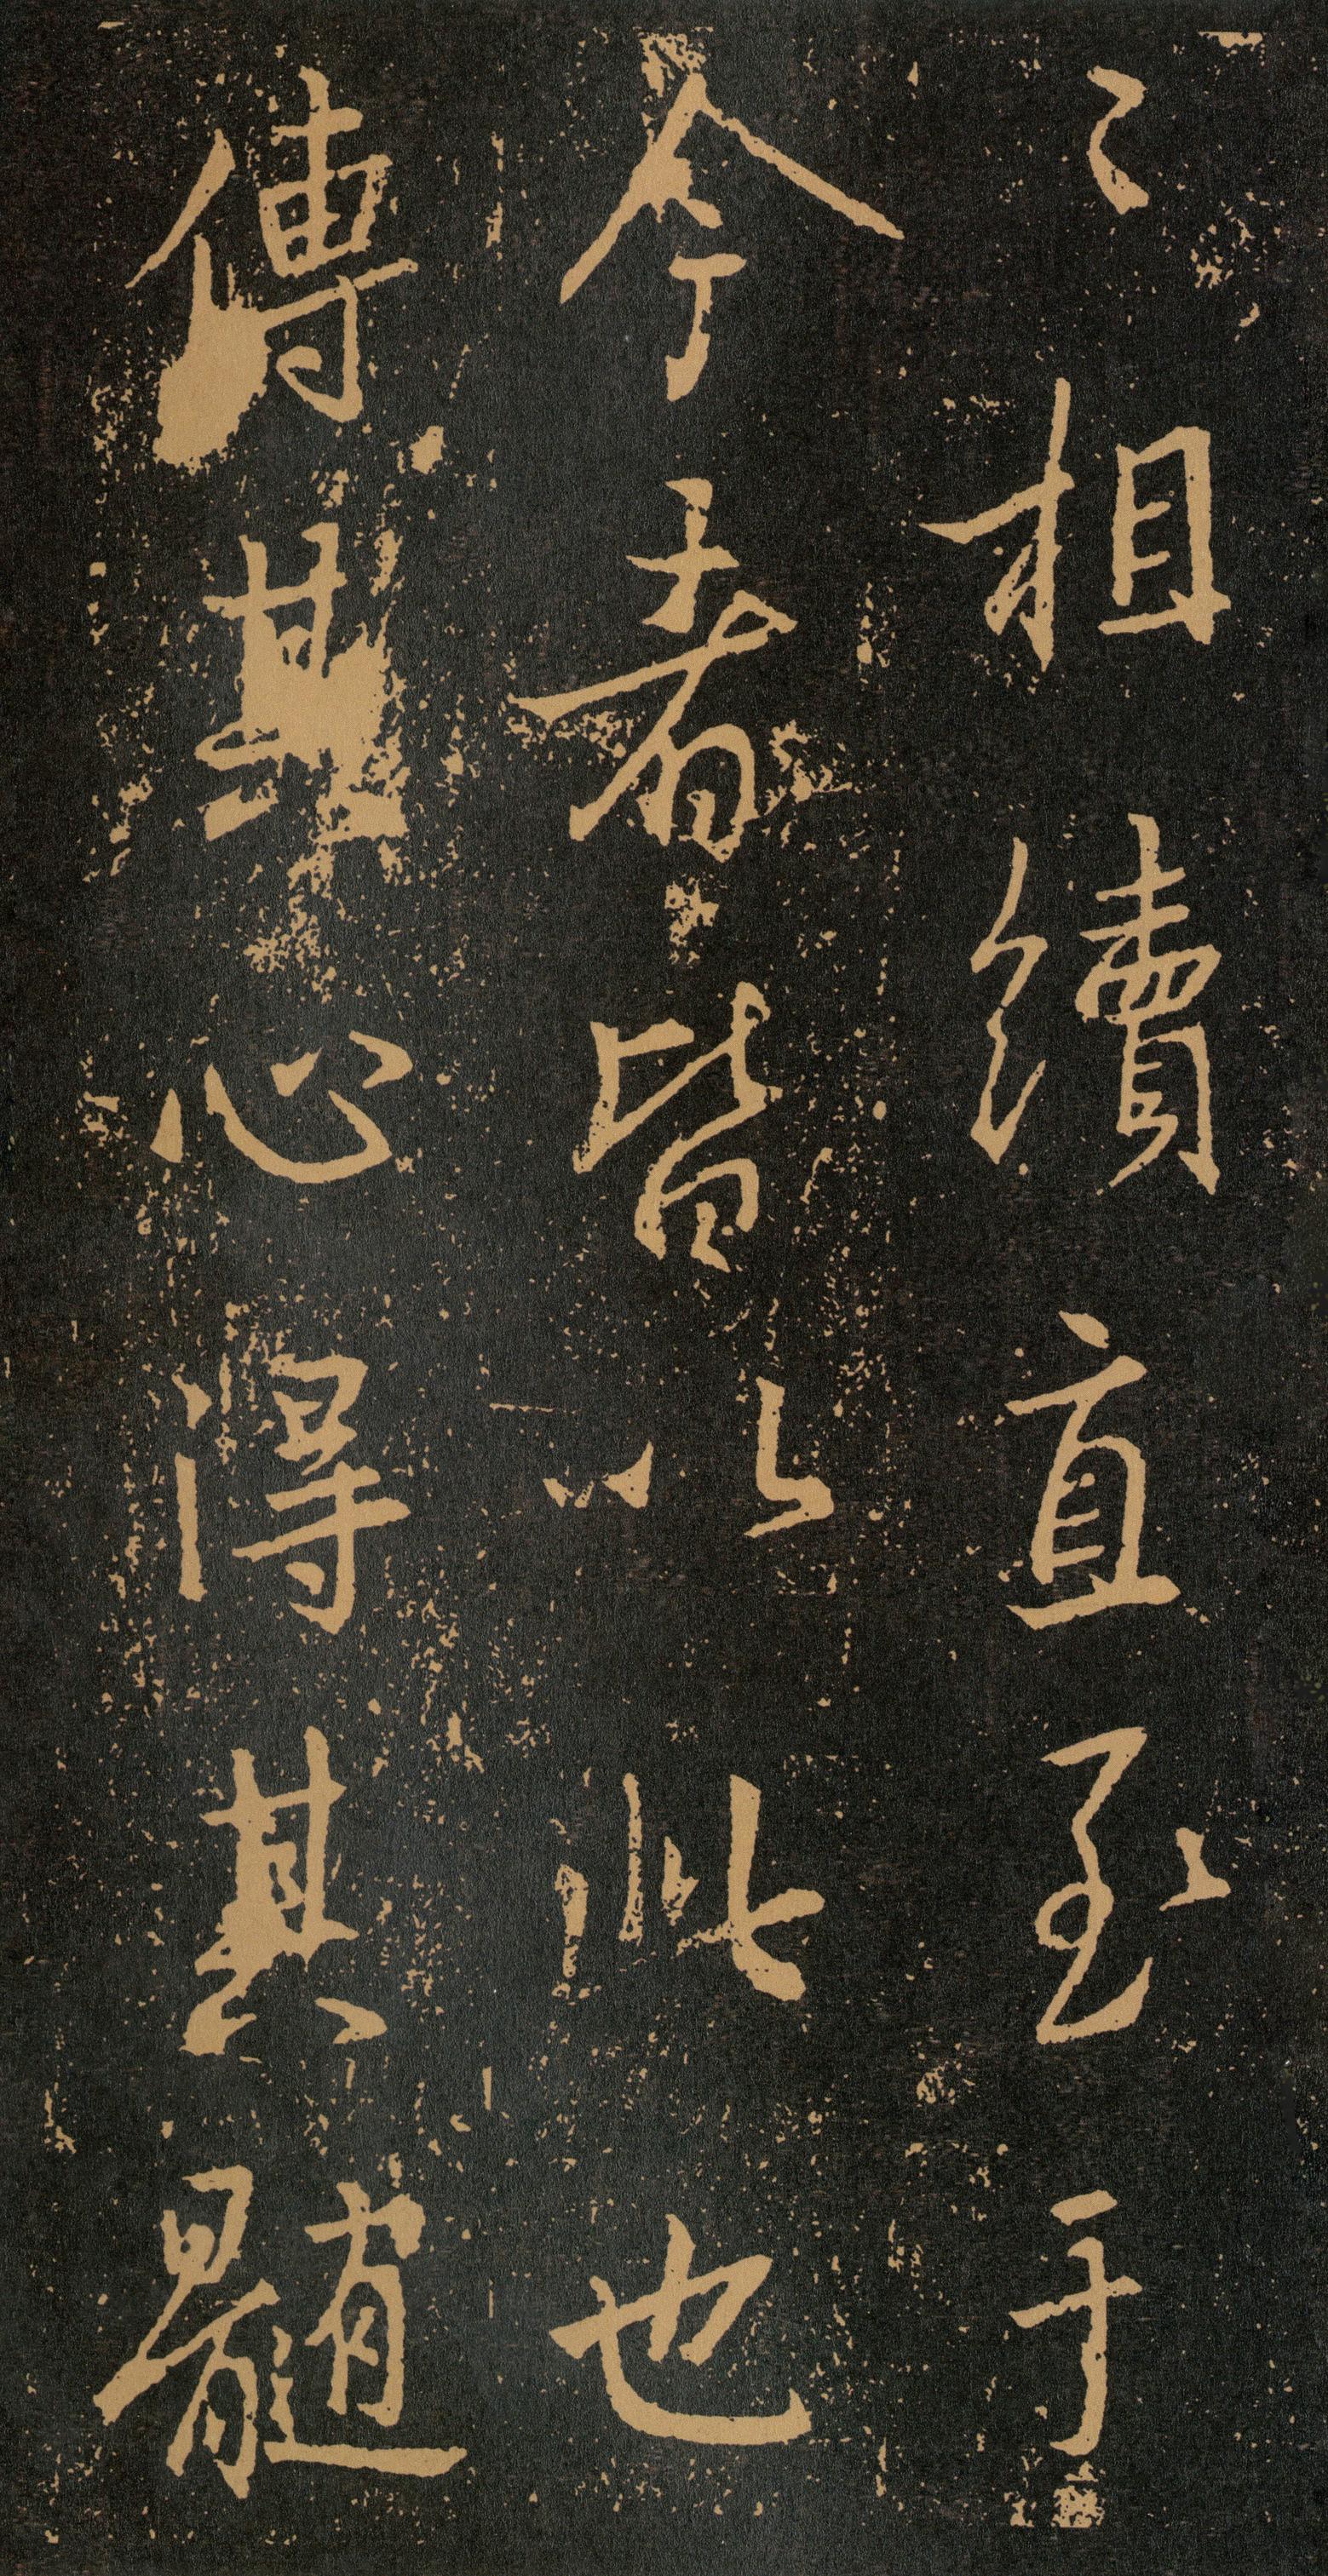 〻相續直至于
今者皆以此也
傳其心得其髓